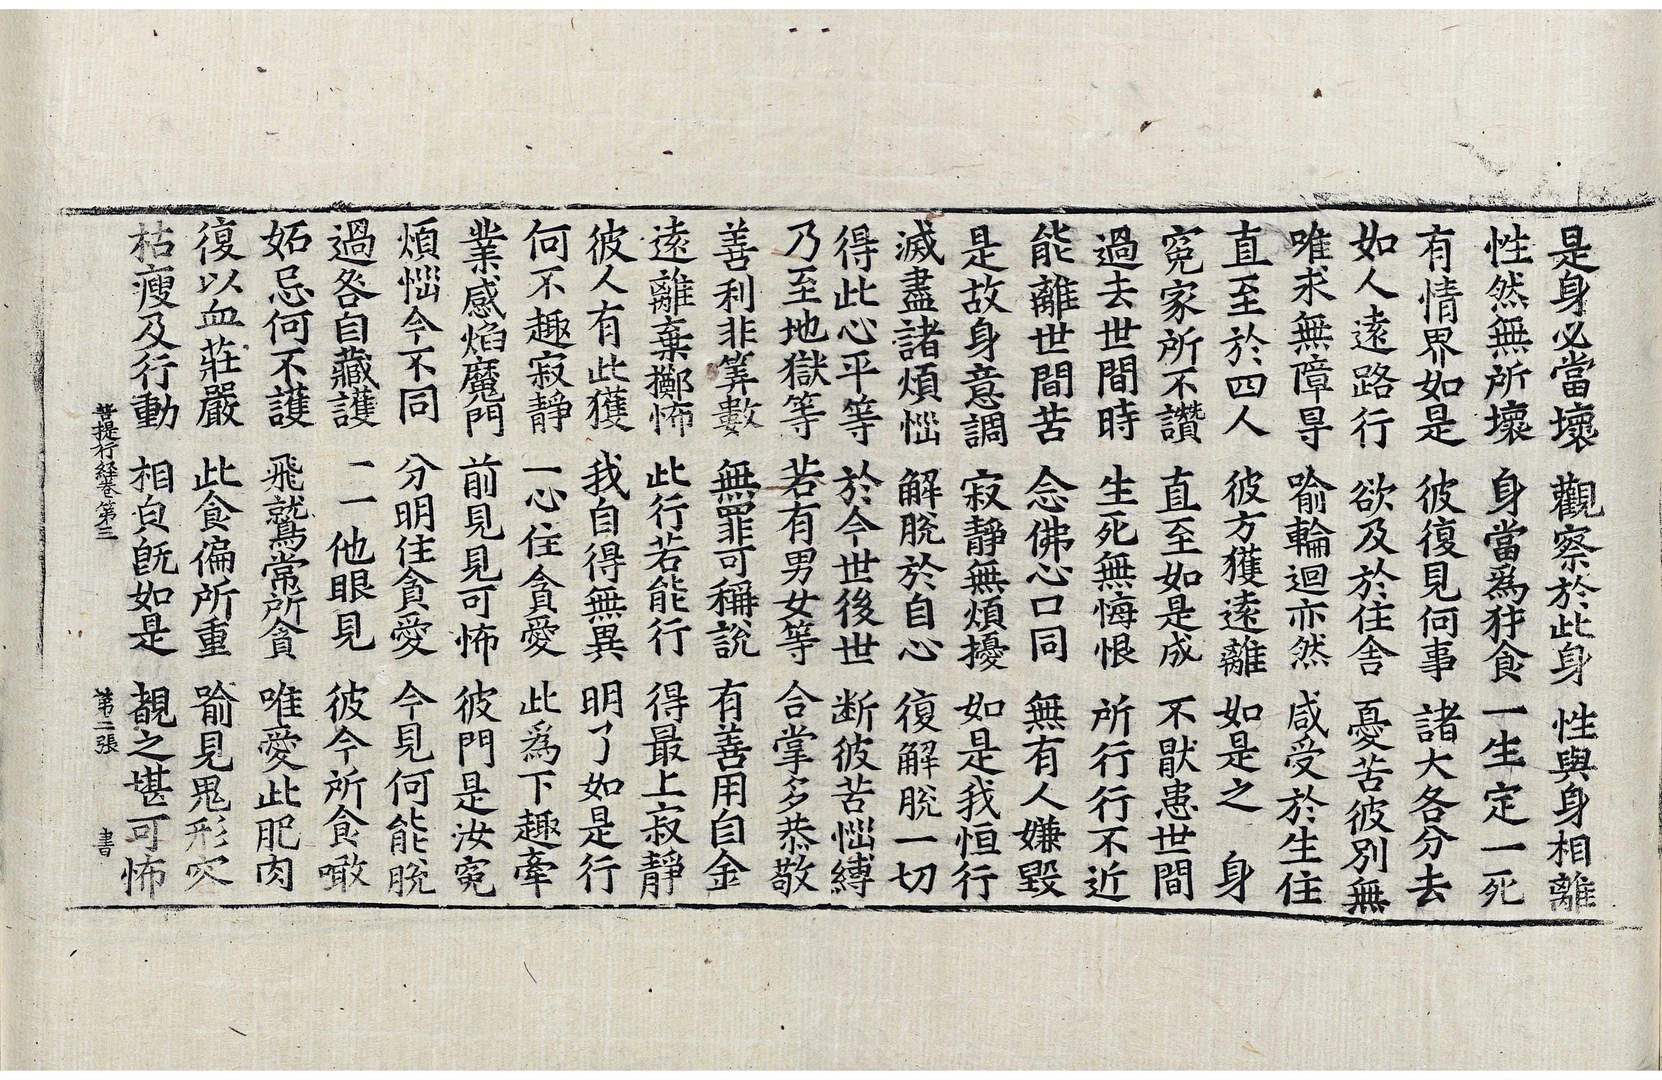 是身必當壞 觀察於此身 性與身相離
性然無所壞 身當爲犲食 一生定一死
有情界如是 彼復見何事 諸大各分去
如人遠路行 欲及於住舍 憂苦彼別無
唯求無障㝵 喻輪迴亦然 咸受於生住
直至於四人 彼方獲遠離 如是之 身
寃家所不讚 直至如是成 不猒患世間
過去世間時 生死無悔恨 所行行不近
能離世間苦 念佛心口同 無有人嫌毀
是故身意調 寂靜無煩擾 如是我恒行
滅盡諸煩惱 解脫於自心 復解脫一切
得此心平等 於今世後世 断彼苦惱縛
乃至地獄等 若有男女等 合掌多恭敬
善利非筭數 無罪可稱說 有善用自金
遠離棄擲怖 此行若能行 得最上寂靜
彼人有此獲 我自得無異 明了如是行
何不趣寂靜 一心住貪愛 此爲下趣牽
業感焰魔門 前見見可怖 彼門是汝寃
煩惱今不同 分明住貪愛 今見何能脫
過咎自藏護 二一他眼見 彼今所食噉
妬忌何不護 飛鷲常所貪 唯愛此肥肉
復以血莊嚴 此食偏所重 喻見鬼形穴
枯瘦及行動 相貟旣如是 覩之堪可怖
菩提行経卷第三 第二張 書